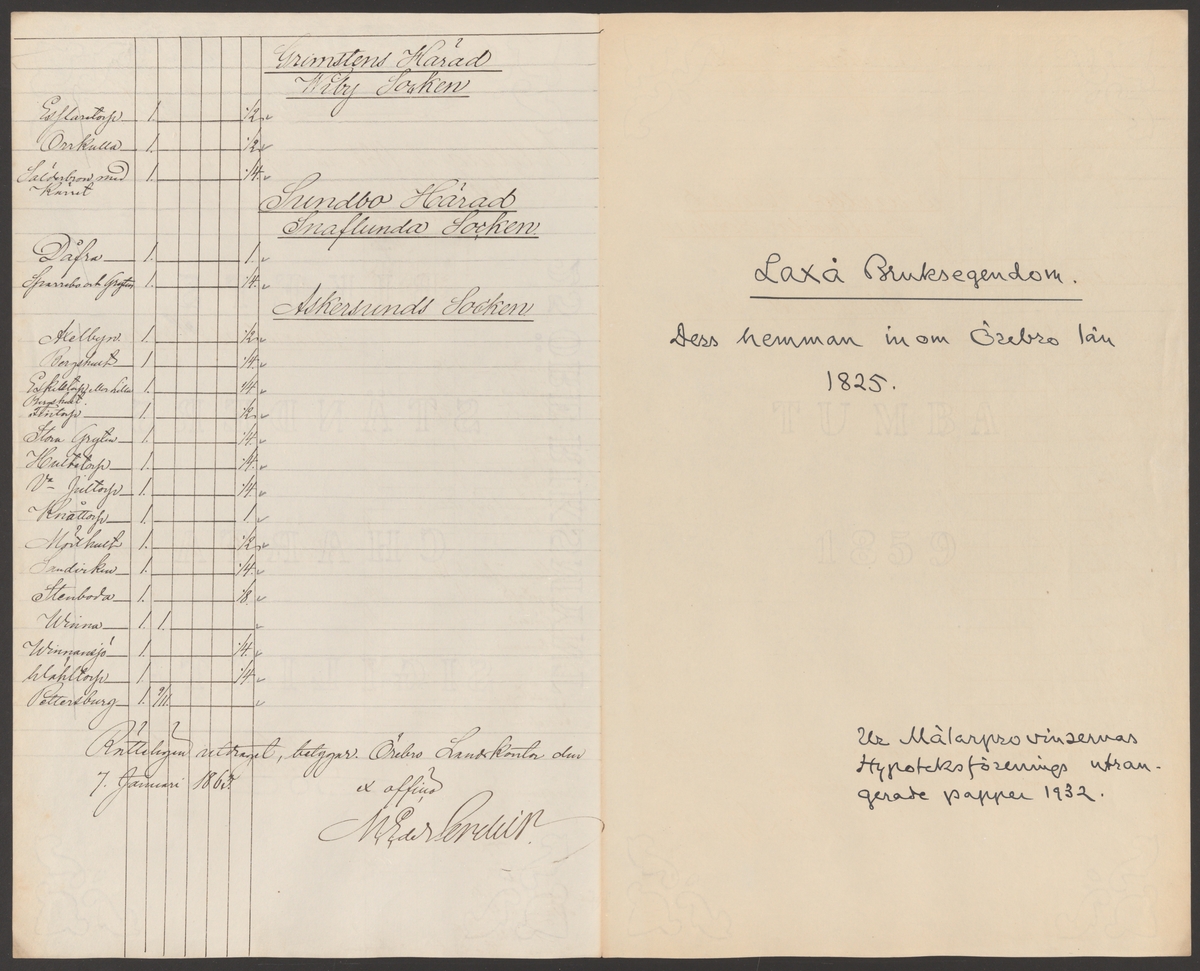 Grimstens Härad
Wiby Socken
Esplaretorp 1. 1/2
Orrkulla 1. 1/2
Sälderbron med 1. 1/4
Kärret
Sundbo Härad
Snaflunda Socken.
Dåfra 1. 1.
Sparrebo och Gryten 1. 1/4
Askersunds Socken
Aselbyn 1. 1/2
Borgshult 1. 1/4
Eskilstorp 1. 1/4
1. 1/2
Stora Gryten 1. 1/4
Hultstorp 1. 1/4
Va Jultorp 1. 1/4
Knåttorp 1. 1.
Mörhult 1. 1/2
1. 1/4
Stenboda 1. 1/8
Winna 1. 1.
Winnansjö 1. 1/4
Wåhltorp 1. 1/4
Pettersburg 1.
Rätteligen utdraget, betygar. Örebro Landskontor den
7. Januari 1863.
ex officio
Laxå Bruksegendom.
Dess hemman inom Örebro län
1825.
Ur Mälarprovinsernas
Hypoteksförenings utran-
gerade papper 1932.